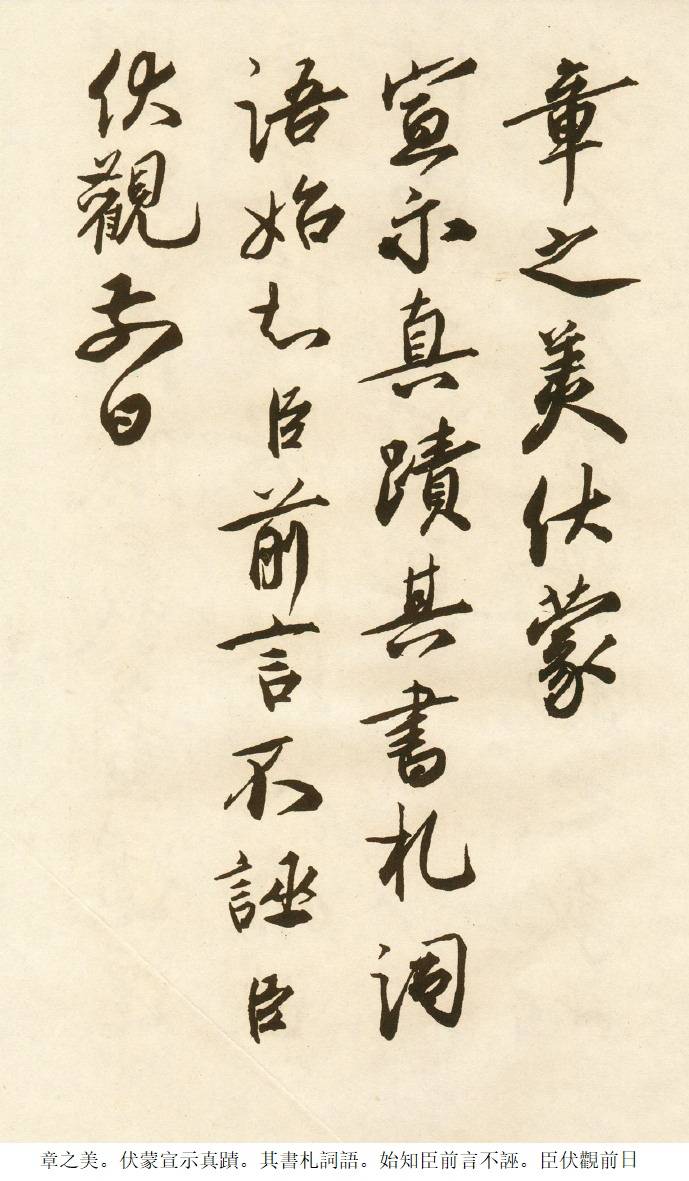 章之美伏蒙
宣示真蹟其書札詞
語始知臣前言不誣臣
伏觀前日
章之美。伏蒙宣示真蹟。其書札詞語。始知臣前言不誣。臣伏觀前日